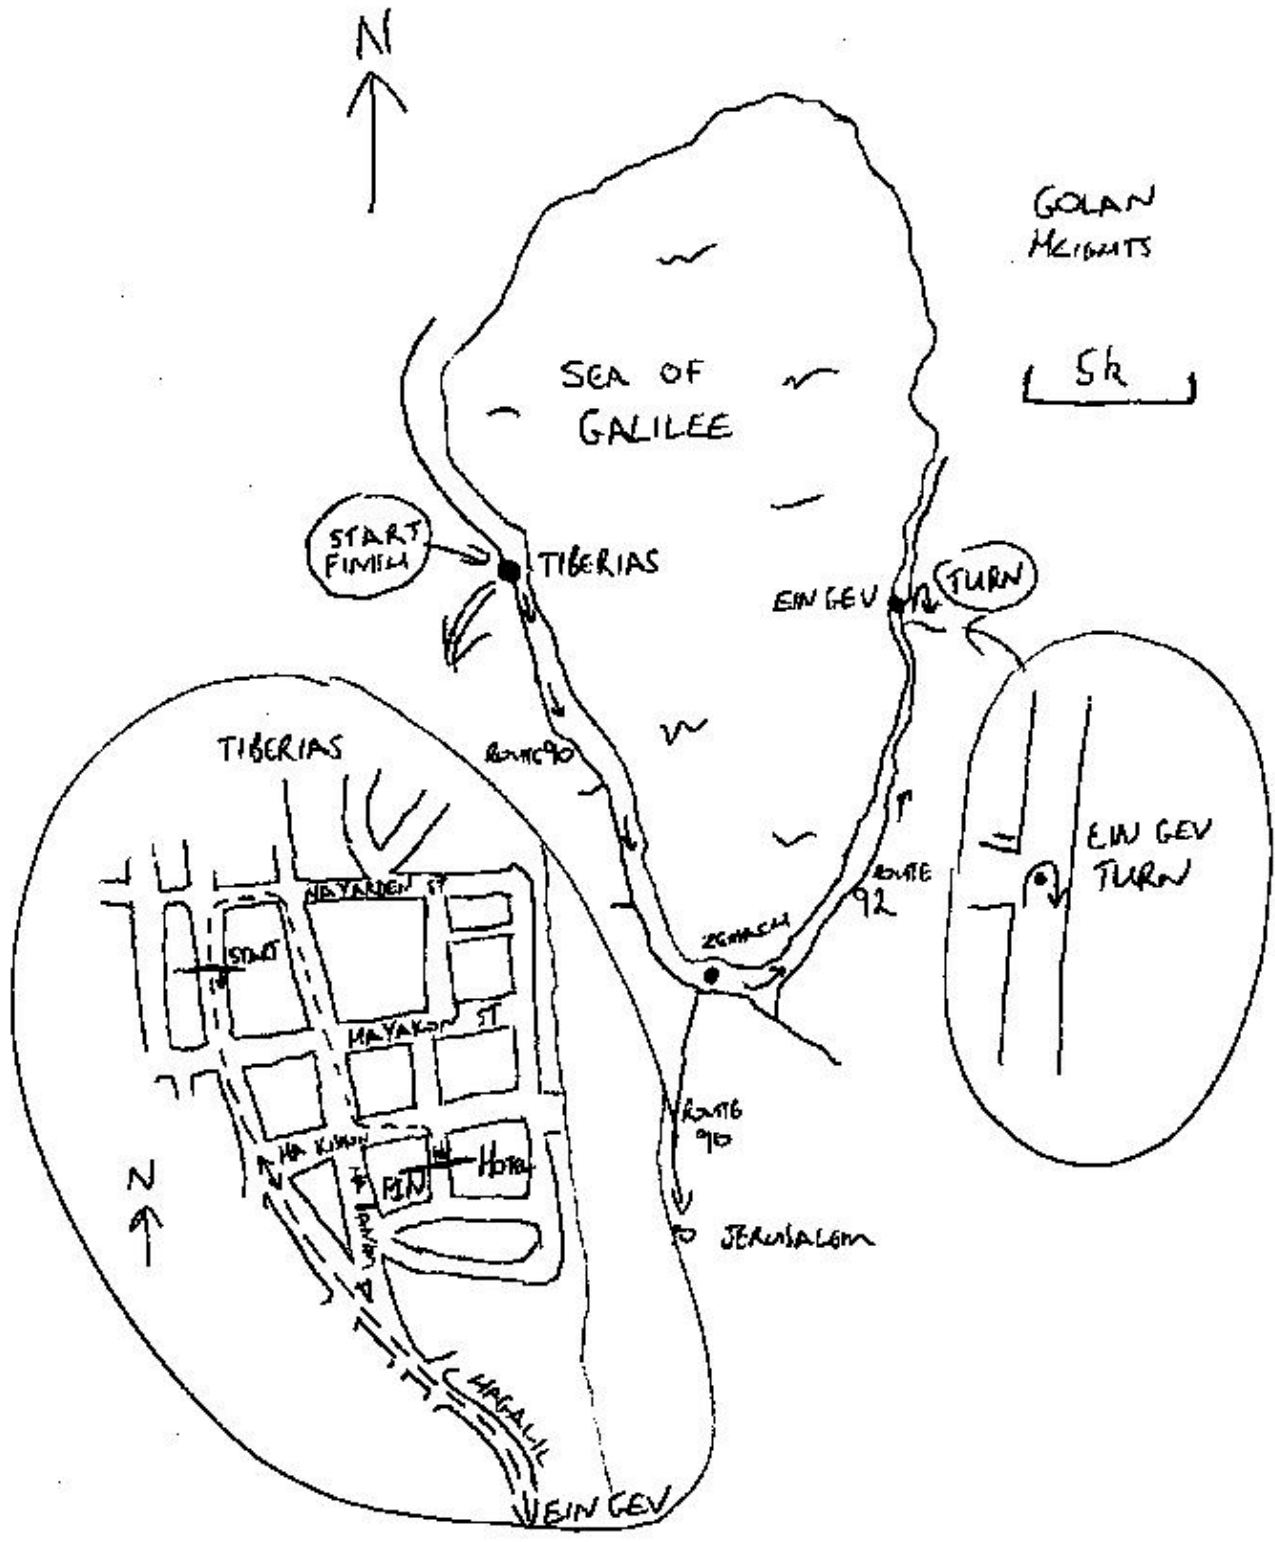 N
GOLAN
HEIGHTS
5k
SEA OF
GALILEE
START
FINISH
TIBERIAS
EIN GEV
TURN
ROUTE 90
ROUTE
92
ZEMACH
EIN GEV
TURN
ROUTE
90
JERUSALEM
TIBERIAS
HAYARDEN ST
START
HAYAKON ST
HA KISHON
FIN
HOTEL
N
HAGALIL
EIN GEV